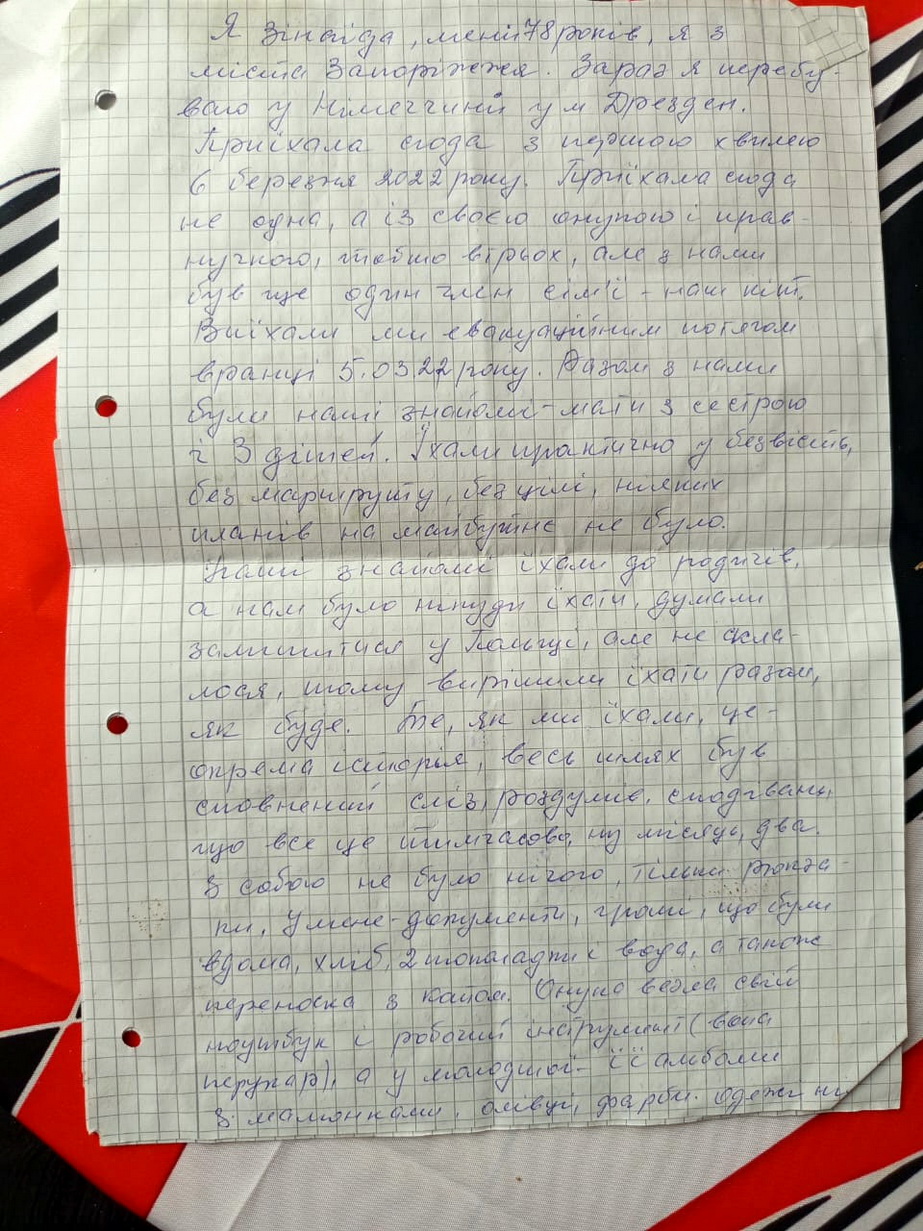 Я Зінаїда, мені 78 років, я з
міста Запоріжжя. Зараз я перебу-
ваю у Німеччині у м Дрезден.
Приїхала сюда з першою хвилею
6 березня 2022 року. Приїхала сюда
не одна, а із своєю онукою і прав-
нучкою, тобто втрьох, але з нами
був ще один член сім'ї - наш кіт.
Виїхали ми евакуаційним потягом
вранці 5.03 22 року. Разом з нами
були наші знайомі - мати з сестрою
і 3 дітей. Їхали практично у безвість,
без маршруту, без цілі, ніяких
планів на майбутнє не було.
Наші знайомі їхали до родичів,
а нам було нікуди їхати, думали
залишитися у Польщі, але не скла-
лося, тому вирішили їхати разом,
як буде. Те, як ми їхали, це -
окрема історія, весь шлях був
сповнений сліз, роздумів, сподівань,
що все це тимчасово, ну місяць, два.
З собою не було нічого, тільки рюкза-
ки, У мене - документи, гроші, що були
вдома, хліб, 2 шоколадки і вода, а також
переноска з котом. Онука везла свій
ноутбук і робочий інструмент (вона
перукар), а у молодшої - її альбоми
з малюнками, олівці, фарби. одежи ні